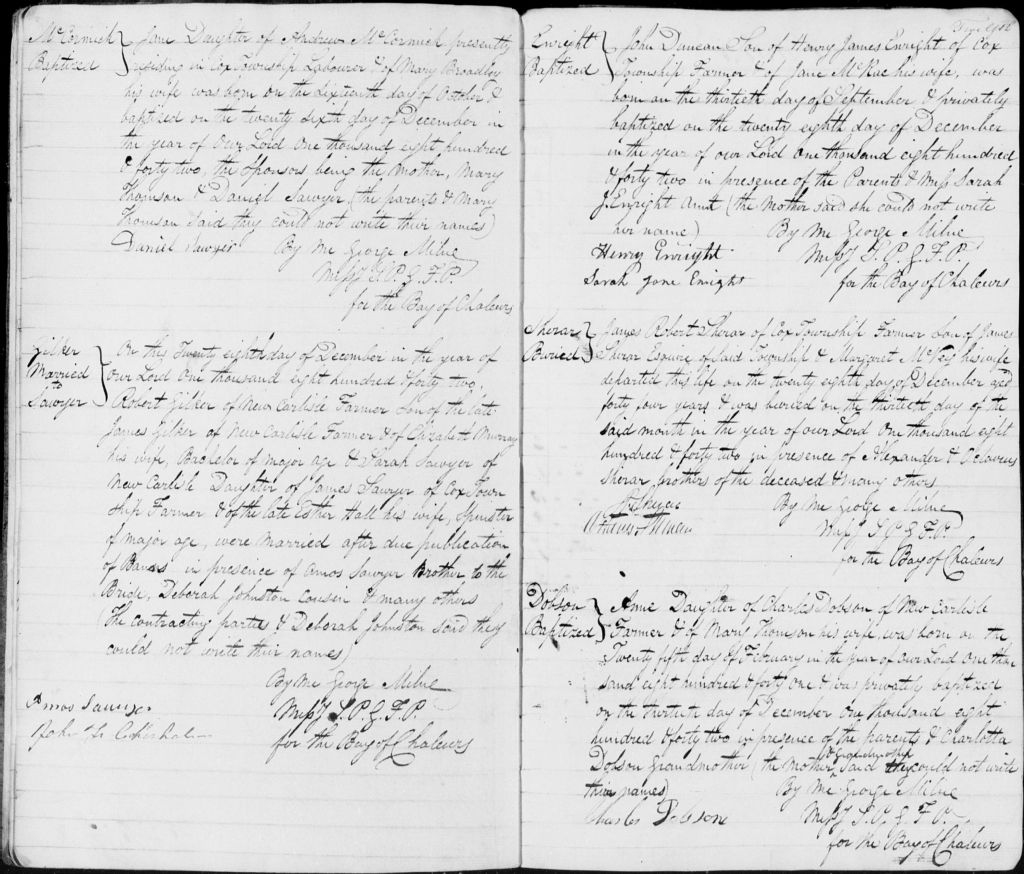 McCormick } Jane Daughter of Andrew McCormick presently
Baptized residing in Cox Township Labourer & of Mary Broadley
his wife was born on the sixteenth day of October &
baptized on the twenty sixth day of December in
the year of our Lord one thousand eight hundred
& forty two, the sponsors being the Mother, Mary
Thomson & Daniel Sawyer (the parents & Mary
Thomson said they could not write their names)
Daniel Sawyer By Me George Milne
Missy S. P. G. F. P.
for the Bay of Chaleurs
Gilker
Married
to
Sawyer
} On this Twenty eighth day of December in the year of
our Lord one thousand eight hundred & forty two
Robert Gilker of New Carlisle Farmer Son of the late
James Gilker of New Carlisle Farmer & of Elizabeth Murray
his wife, Bachelor of major age & Sarah Sawyer of
New Carlisle Daughter of James Sawyer of Cox Town
ship Farmer & of the late Esther Hall his wife, Spinster
of major age, were married after due publication
of Banns in presence of Amos Sawyer Brother to the
Bride, Deborah Johnston cousen & many others
(The contracting parties & Deborah Johnston said they
could not write their names)
By Me George Milne
Amos Sawyer Missy S. P. G. F. P.
John for the Bay of Chaleurs
Enright } John Duncan Son of Henry James Enright of Cox
Baptized Township Farmer & of Jane McRae his wife, was
born on the thirtieth day of September & privately
baptized on the twenty eighth day of December
in the year of our Lord one thousand eight hundred
& forty two in presence of the Parents & Miss Sarah
J. Enright Aunt (the Mother said she could not write
her name) By Me George Milne
Henry Enright Missy S. P. G. F. P.
Sarah Jane Enright for the Bay of Chaleurs
Sherar } James Robert Sherar of Cox Township Farmer Son of James
Buried Sherar Esquire of said Township & Margaret his wife
departed this life on the twenty eighth day of December aged
forty four years & was buried on the thirtieth day of the
said month in the year of our Lord one thousand eight
hundred & forty two in presence of Alexander &
Sherar brothers of the deceased & many others
By Me George Milne
Missy S. P. G. F. P.
for the Bay of Chaleurs
Dobson } Anne Daughter of Charles Dobson of New Carlisle
Baptized Farmer & of Mary Thomson his wife, was born on the
Twenty fifth day of February in the year of our Lord one thou
sand eight hundred & forty one & was privately baptized
on the thirtieth day of December one thousand eight
hundred & forty two in presence of the parents & Charlotta
Dobson Grandmother (the Mother & Grandmother said they could not write
their names) By Me George Milne
Charles Dobson Missy S. P. G. F. P.
for the Bay of Chaleurs